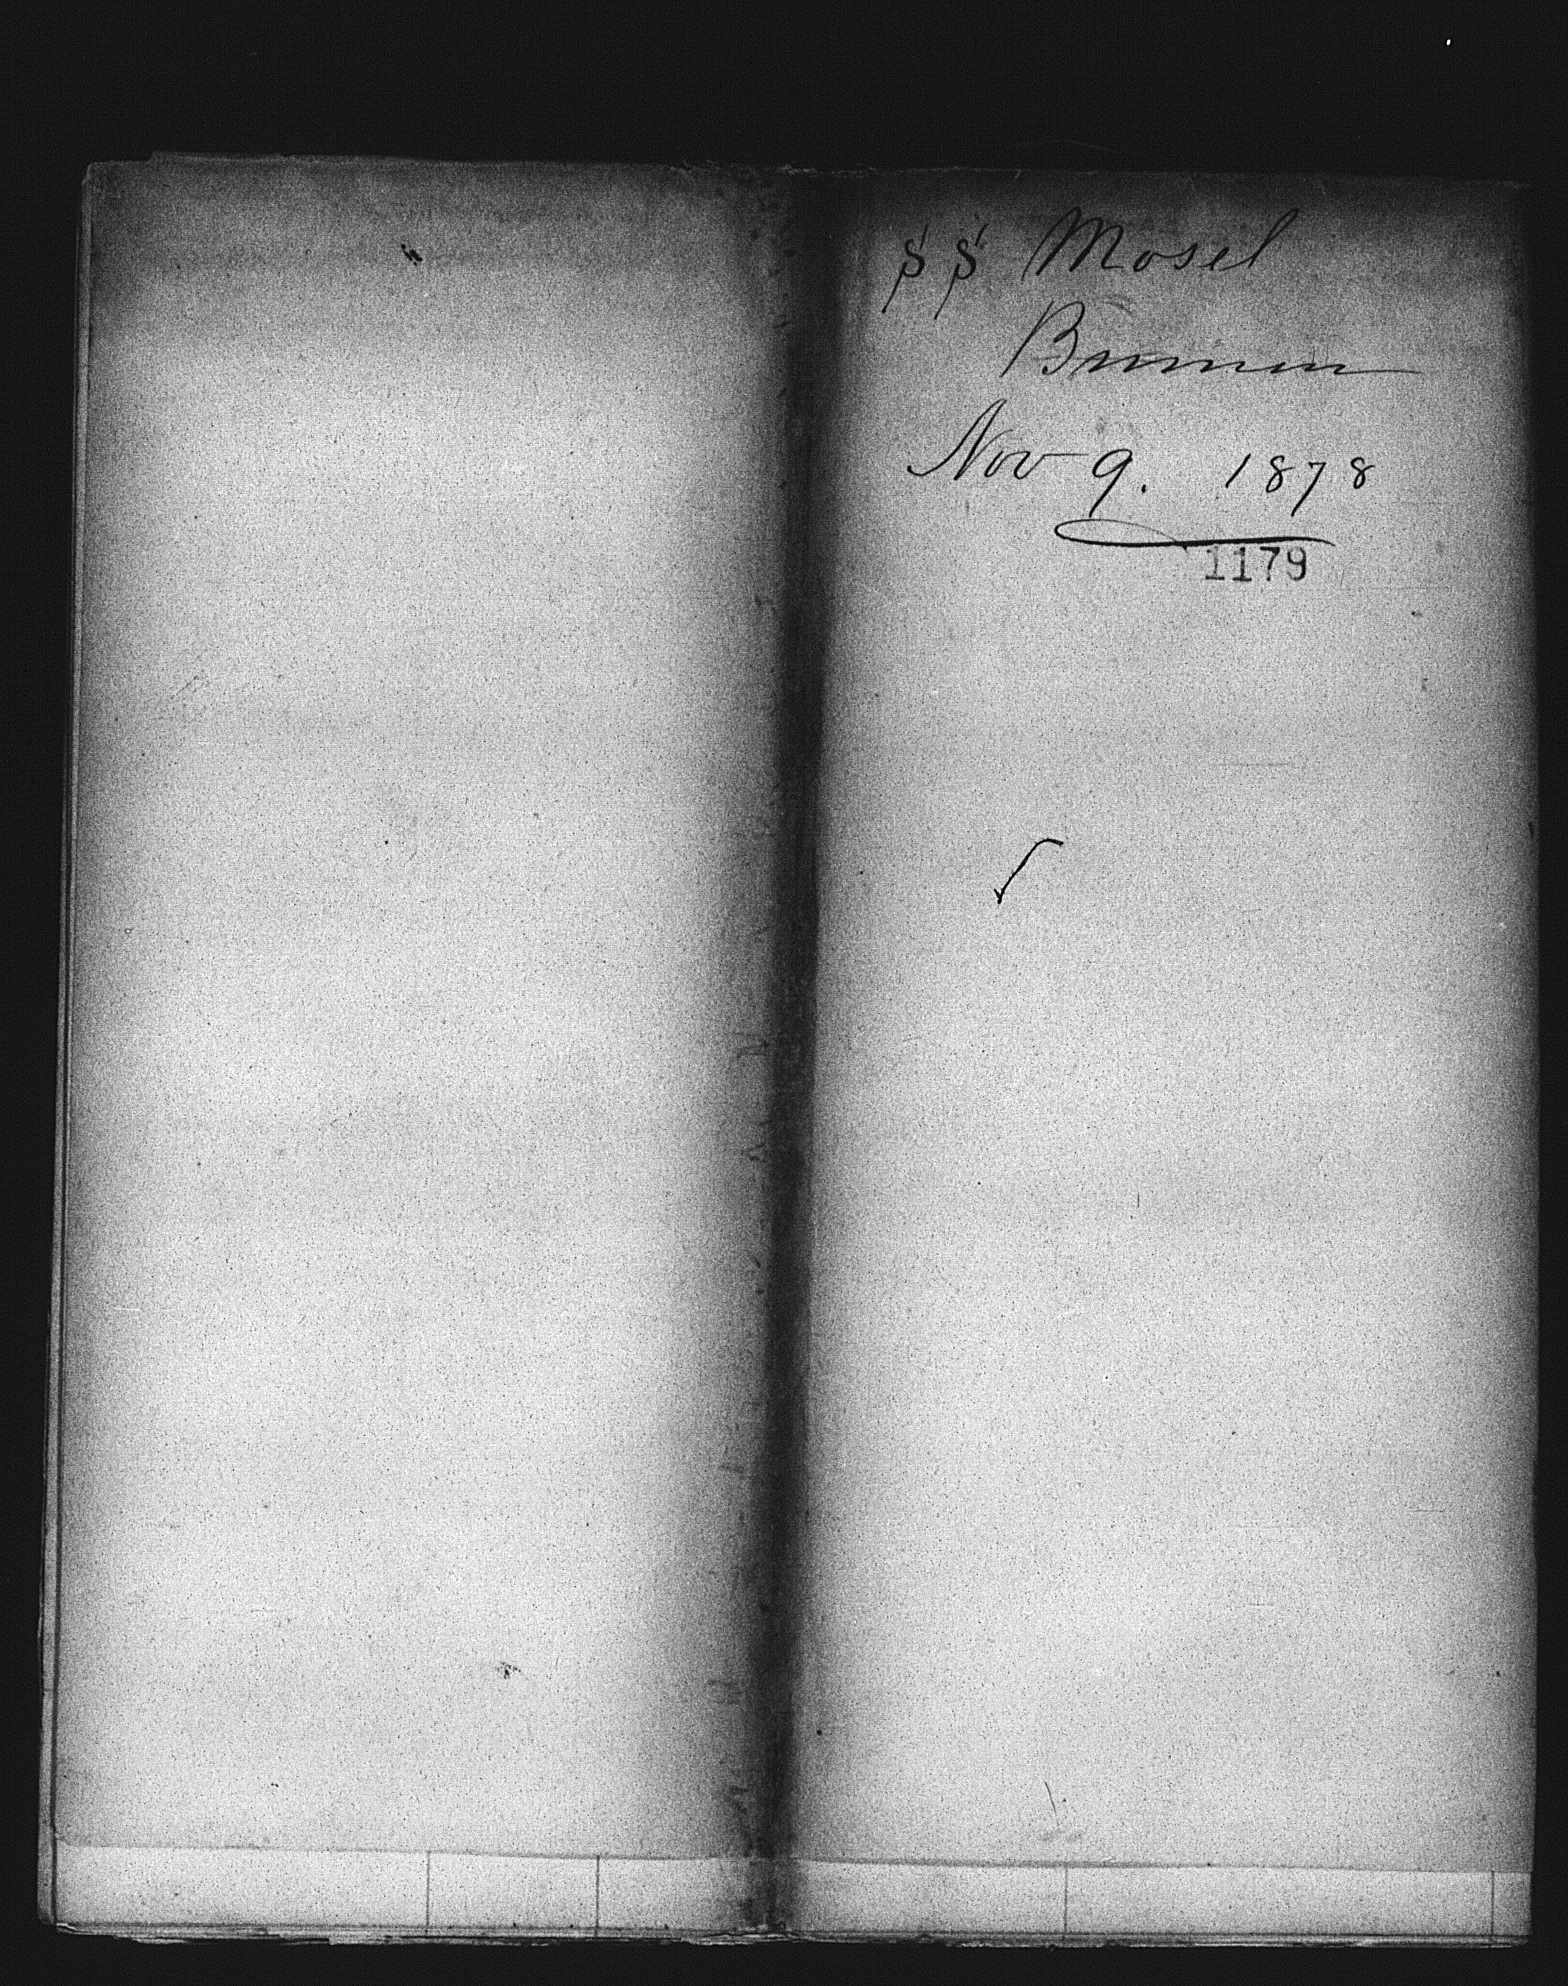 SS Mosel
Bremen
Nov 9. 1878
1179